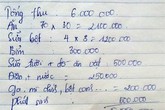 Tổng thu 6.000.000
Ăn 70 x 30 = 2.100.000
Sữa bột 4 x 3 = 1200.000
Bỉm 300.000
Sữa tươi + đồ ăn vặt 500.000
Điện + nước = 250.000
Ga, mì chính, bột canh... = 200.000
phát sinh 500.000